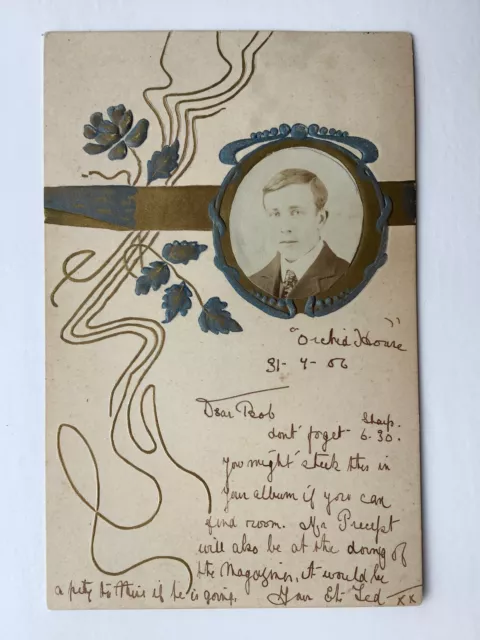 "Orchid House"
31-7-06
Dear Bob
dont forget 6.30. Sharp.
you might stick this in
your album if you can
find room. Mr Precept
will also be at the doing of
the Magazines, it would be
a pity to miss if he is going. Your Ted xx